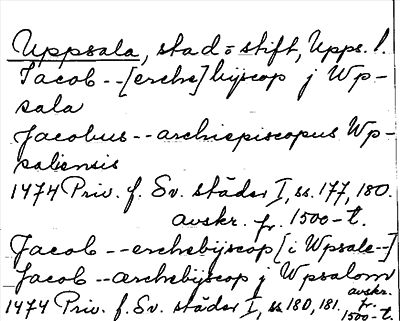 Uppsala, stad = stift, Upps. l.
Jacob -- [erche] biscop j Wp-
sala
Jacobus -- archiepiscopus Wp-
saliensis
1474 Priv. f. Sv. städer I, ss. 177, 180.
avskr. fr. 1500-t.
Jacob -- erchebijscop [i Wpsale--]
Jacob -- ærchebijscop j Wpsalom
1474 Priv. f. Sv. städer I, ss 180, 181. avskr. fr. 1500-t.